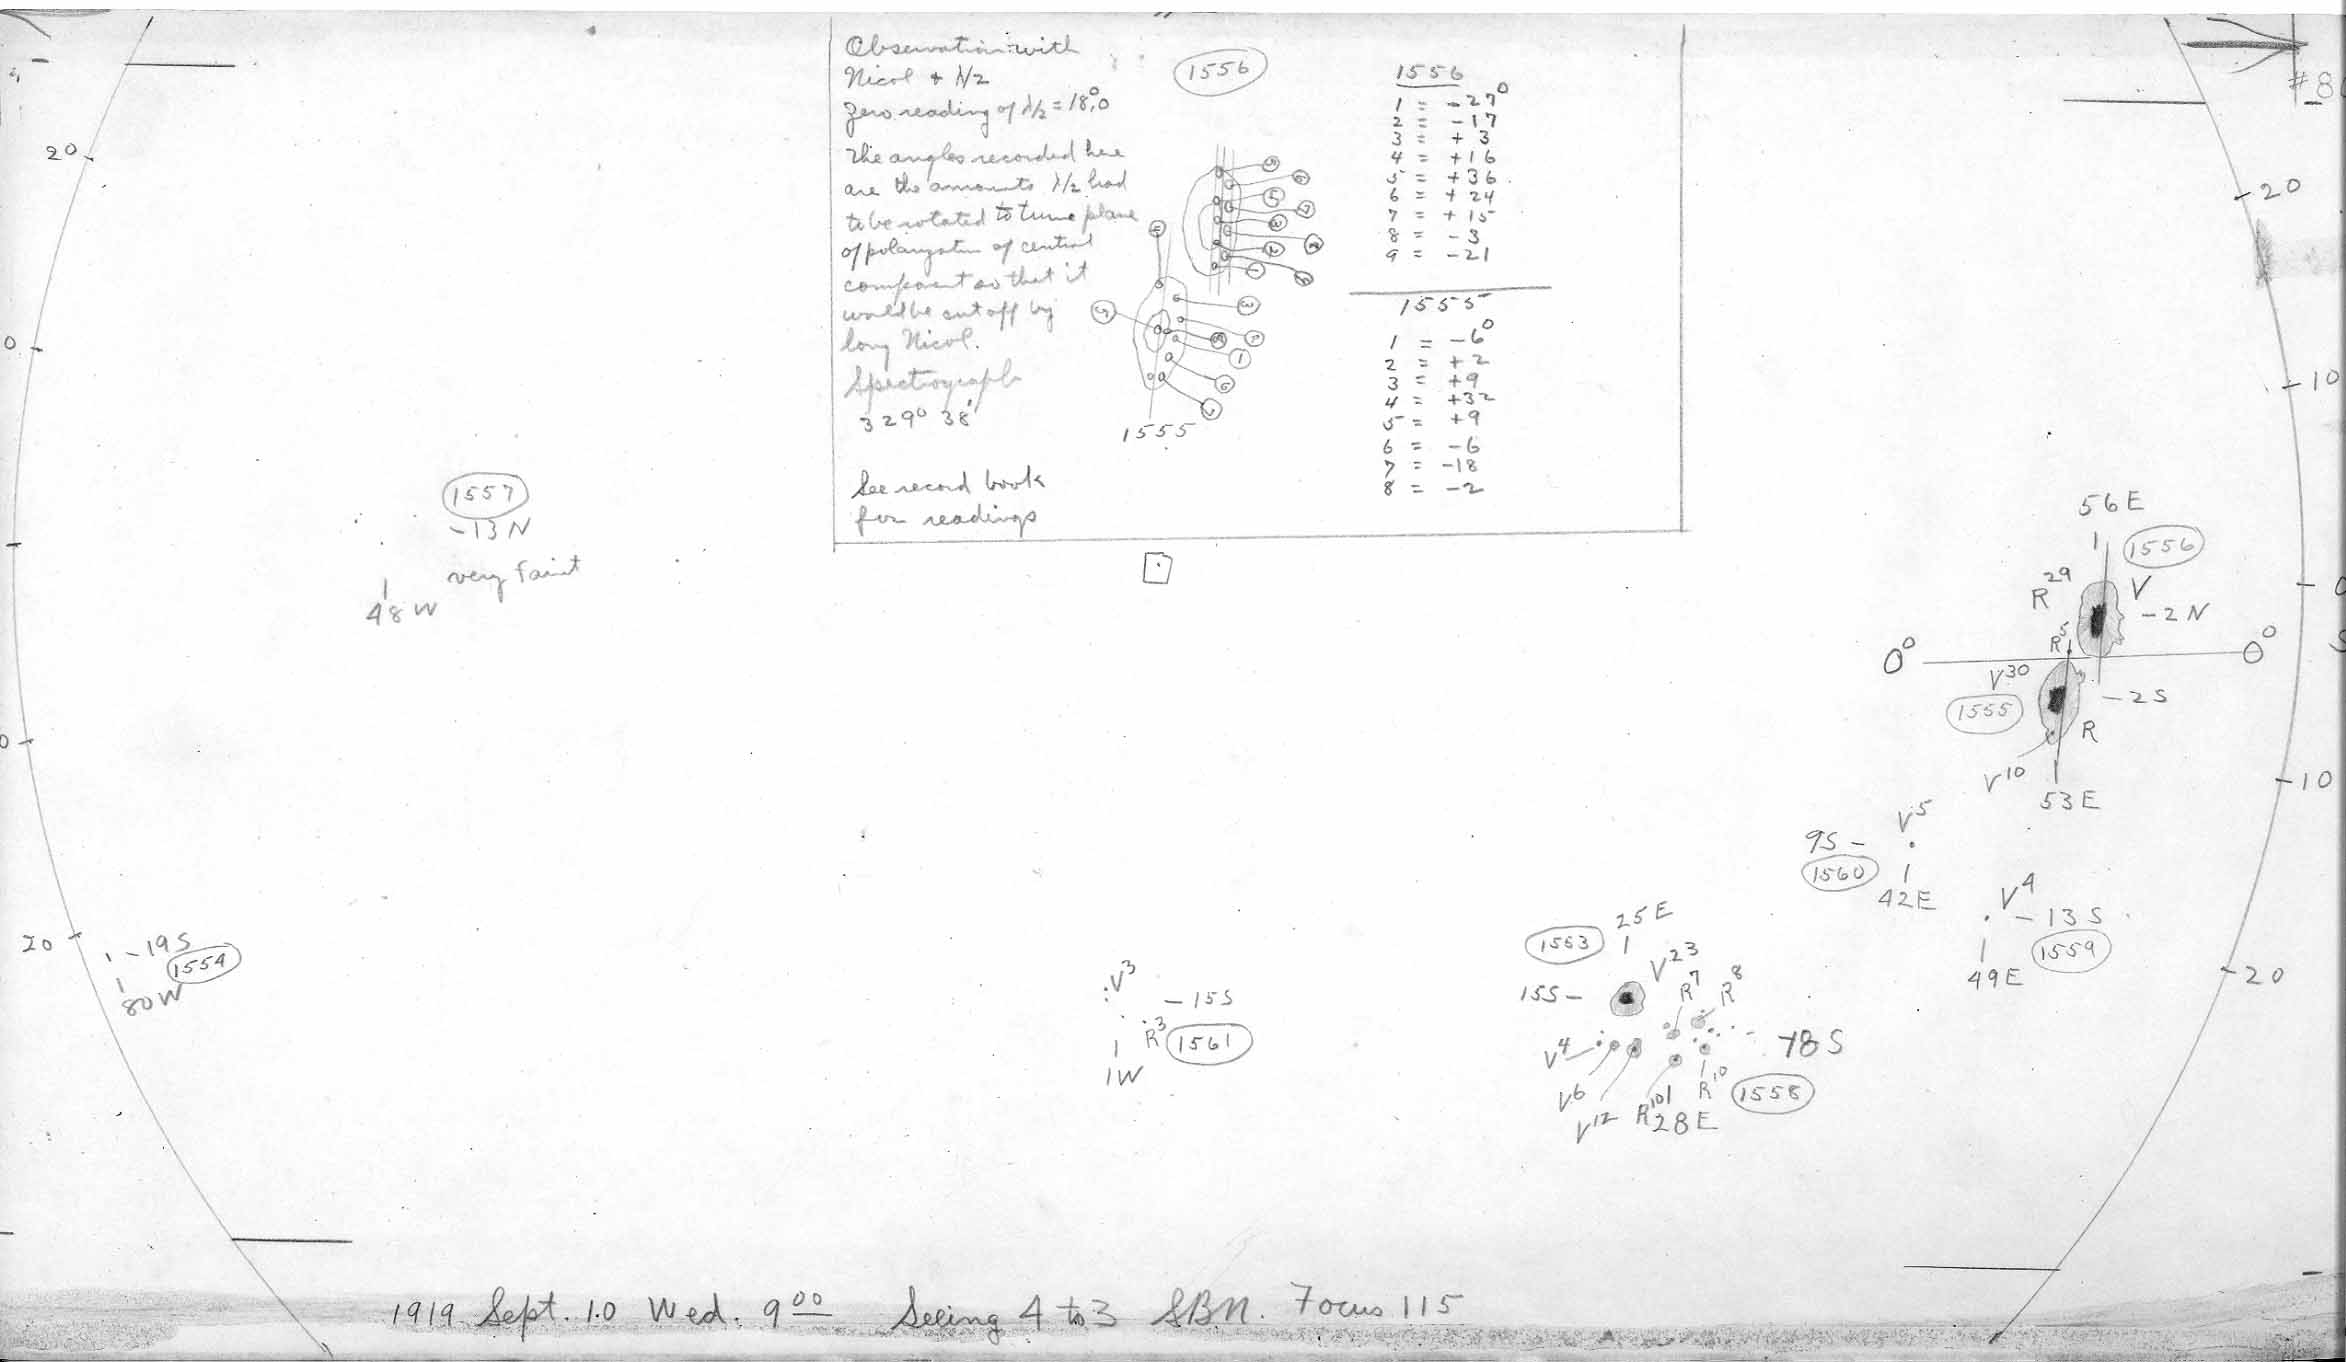 Observation with
Nicol + λ/2
Zero reading of λ/2 = 18.°0
The angles recorded here
are the amounts λ/2 had
to be rotated to turn plane
of polarization of central
component so that it
would be cut off by
long Nicol.
Spectrograph
329° 38'
See record book
for readings
1556
1555
1556
1 = -27°
2 = -17
3 = +3
4 = +16
5 = +36
6 = +24
7 = +15
8 = -3
9 = -21
1555
1 = -6°
2 = +2
3 = +9
4 = +32
5 = +9
6 = -6
7 = -18
8 = -2
#8
20
0
0
20
20
10
0
10
20
1557
-13N
very faint
48W
-19S
1554
80W
56E
1556
R29
V
-2N
R5
0°
0°
V30
1555
-2S
R
V10
53E
V5
9S-
1560
42E
V4
-13S
1559
49E
25E
1553
V23
15S-
R7
R8
V4
18S
V6
V12
R10
R10
1558
28E
V3
-15S
R3
1561
1W
1919 Sept. 10 Wed. 9 00 Seeing 4 to 3 SBN. Focus 115